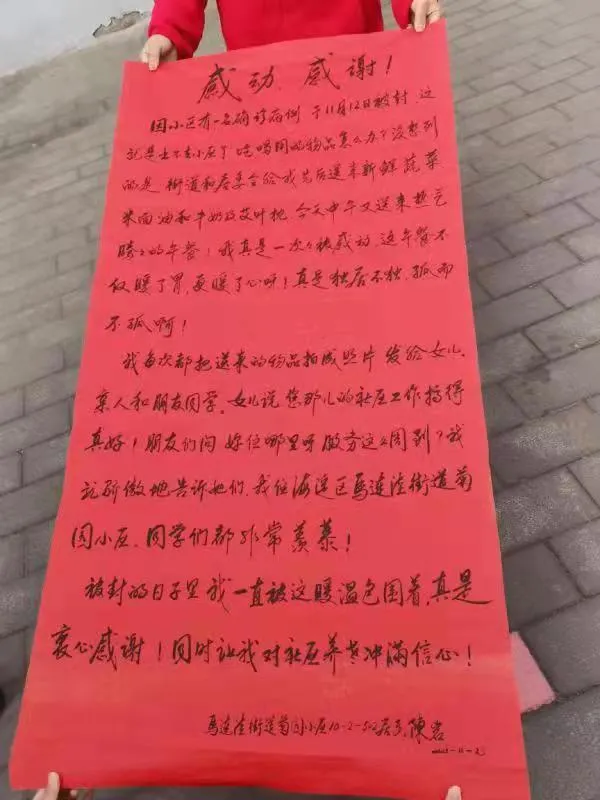 感动、感谢！
因小区有一名确诊病例 于11月12日被封，这
就是出不去小区了 吃喝用的物品怎么办？没想到
的是 街道和居委会给我先后送来新鲜蔬菜
米面油和牛奶及艾叶枕 今天中午又送来热气
腾腾的午餐！我真是一次次被感动，这午餐不
仅暖了胃，更暖了心呀！真是独居不独，孤而
不孤啊！
我每次都把送来的物品拍成照片 发给女儿、
亲人和朋友同学。女儿说 您那儿的社区工作搞得
真好！朋友们问 妳住哪里呀服务这么周到？我
就骄傲地告诉她们，我住海淀区马连洼街道菊
园小区，同学们都非常羡慕！
被封的日子里 我一直被这暖温包围着，真是
衷心感谢！同时让我对社区养老冲满信心！
马连洼街道菊园小区10-2-502居民 陳岩